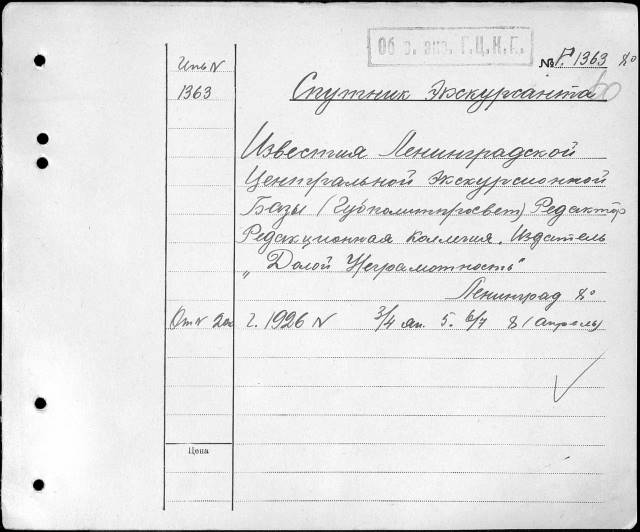 Об з. экз. Г.Ц.К.Г.
№ Р. 1363 8º
Инв N
1363
Спутник Экскурсанта
Известия Ленинградской
Центральной Экскурсионной
Базы (Губполитпросвет) Редактор
Редакционная Коллегия. Издатель
„Долой Неграмотность"
Ленинград 8º
г. 1926 N 3/4 ап. 5. 6/7 8 (апрель)
Цена